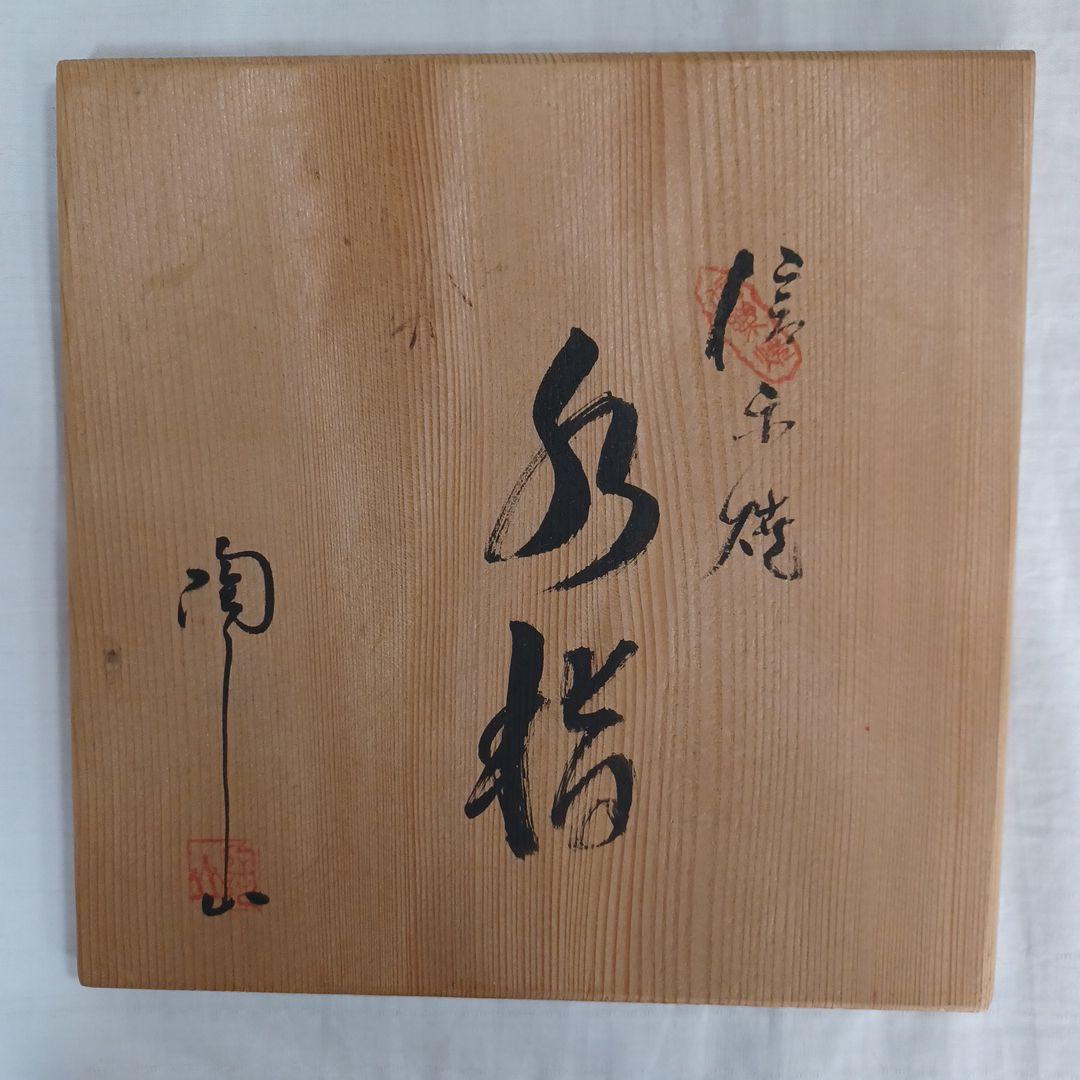 信楽焼
水指
陶山